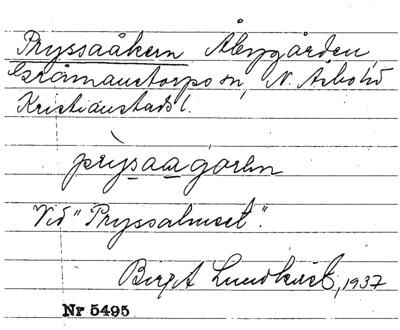 Pryssaåkern Åbygården,
Gråmanstorps sn, N. Åsbo hd
Kristianstads l.
prysaagorln
Vid "Pryssahuset".
Birgit Lundkvist, 1937
Nr 5495